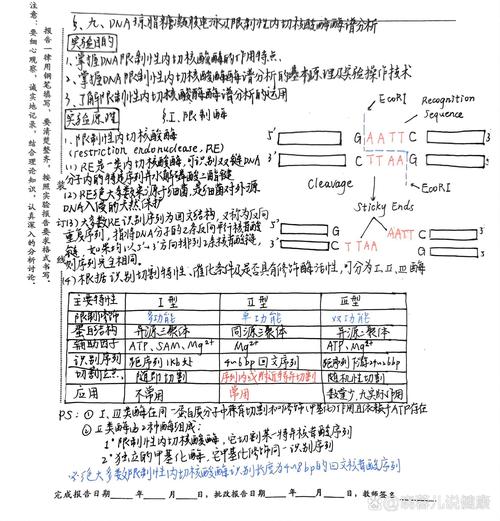 §、九、DNA琼脂糖凝胶电泳及限制性内切核酸酶酶谱分析
实验目的
1、掌握DNA限制性内切核酸酶的作用特点、
2、掌握DNA限制性内切核酸酶酶谱分析的基本原理及实验操作技术
3、了解限制性内切核酸酶酶谱分析的运用
实验原理
§.I.限制酶
1、限制性内切核酸酶
(restriction endonuclease, RE)
(1)RE是一类内切核酸酶,可识别双链DNA
分子内的特定序列并水解磷酸二酯键
(2)RE绝大多数来源于细菌,是细菌对外源
DNA入侵的天然保护
(3)大多数RE识别序列为回文结构,又称为反向
重复序列,指得DNA分子的2条反向平行核苷酸
链,如果均以5'→3'方向排列2条核苷酸链,
则序列完全相同。
(4)根据识别切割特性、催化条件及是否具有修饰酶活性,可分为Ⅰ、Ⅱ、Ⅲ酶
EcoRI
Recognition
Sequence
G AATT C
C TTAA G
Cleavage
EcoRI
Sticky Ends
G
AATT C
C TTAA
G
主要特性 Ⅰ型 Ⅱ型 Ⅲ型
限制修饰 多功能 单功能 双功能
蛋白结构 异源三聚体 同源二聚体 异源二聚体
辅助因子 ATP、SAM、Mg2+ Mg2+ ATP、Mg2+
识别序列 距序列1kb处 4~6bp回文序列 距序列下游24~26bp
切割位点 随即切割 序列内或附近特异切割 随机性切割
应用 不常用 常用 数量少,九实际用
PS: ① Ⅰ、Ⅲ类酶在同一蛋白质分子中兼有切割和修饰(甲基化)作用且依赖于ATP存在
② Ⅱ类酶由2种酶组成:
1°限制性内切核酸酶,它切割某一特异核苷酸序列
2°独立的甲基化酶,它甲基化修饰同一识别序列
绝大多数Ⅱ型限制性内切核酸酶识别长度为4~8bp的回文核苷酸序列
完成报告日期 年 月 日,批改报告日期 年 月 日,教师签名
注意:
报告一律用钢笔填写,要清楚整齐,按照实验报告要求格式书写。
要细心观察,诚实地记录,结合理论知识,认真深入的分析讨论。
装
订
线